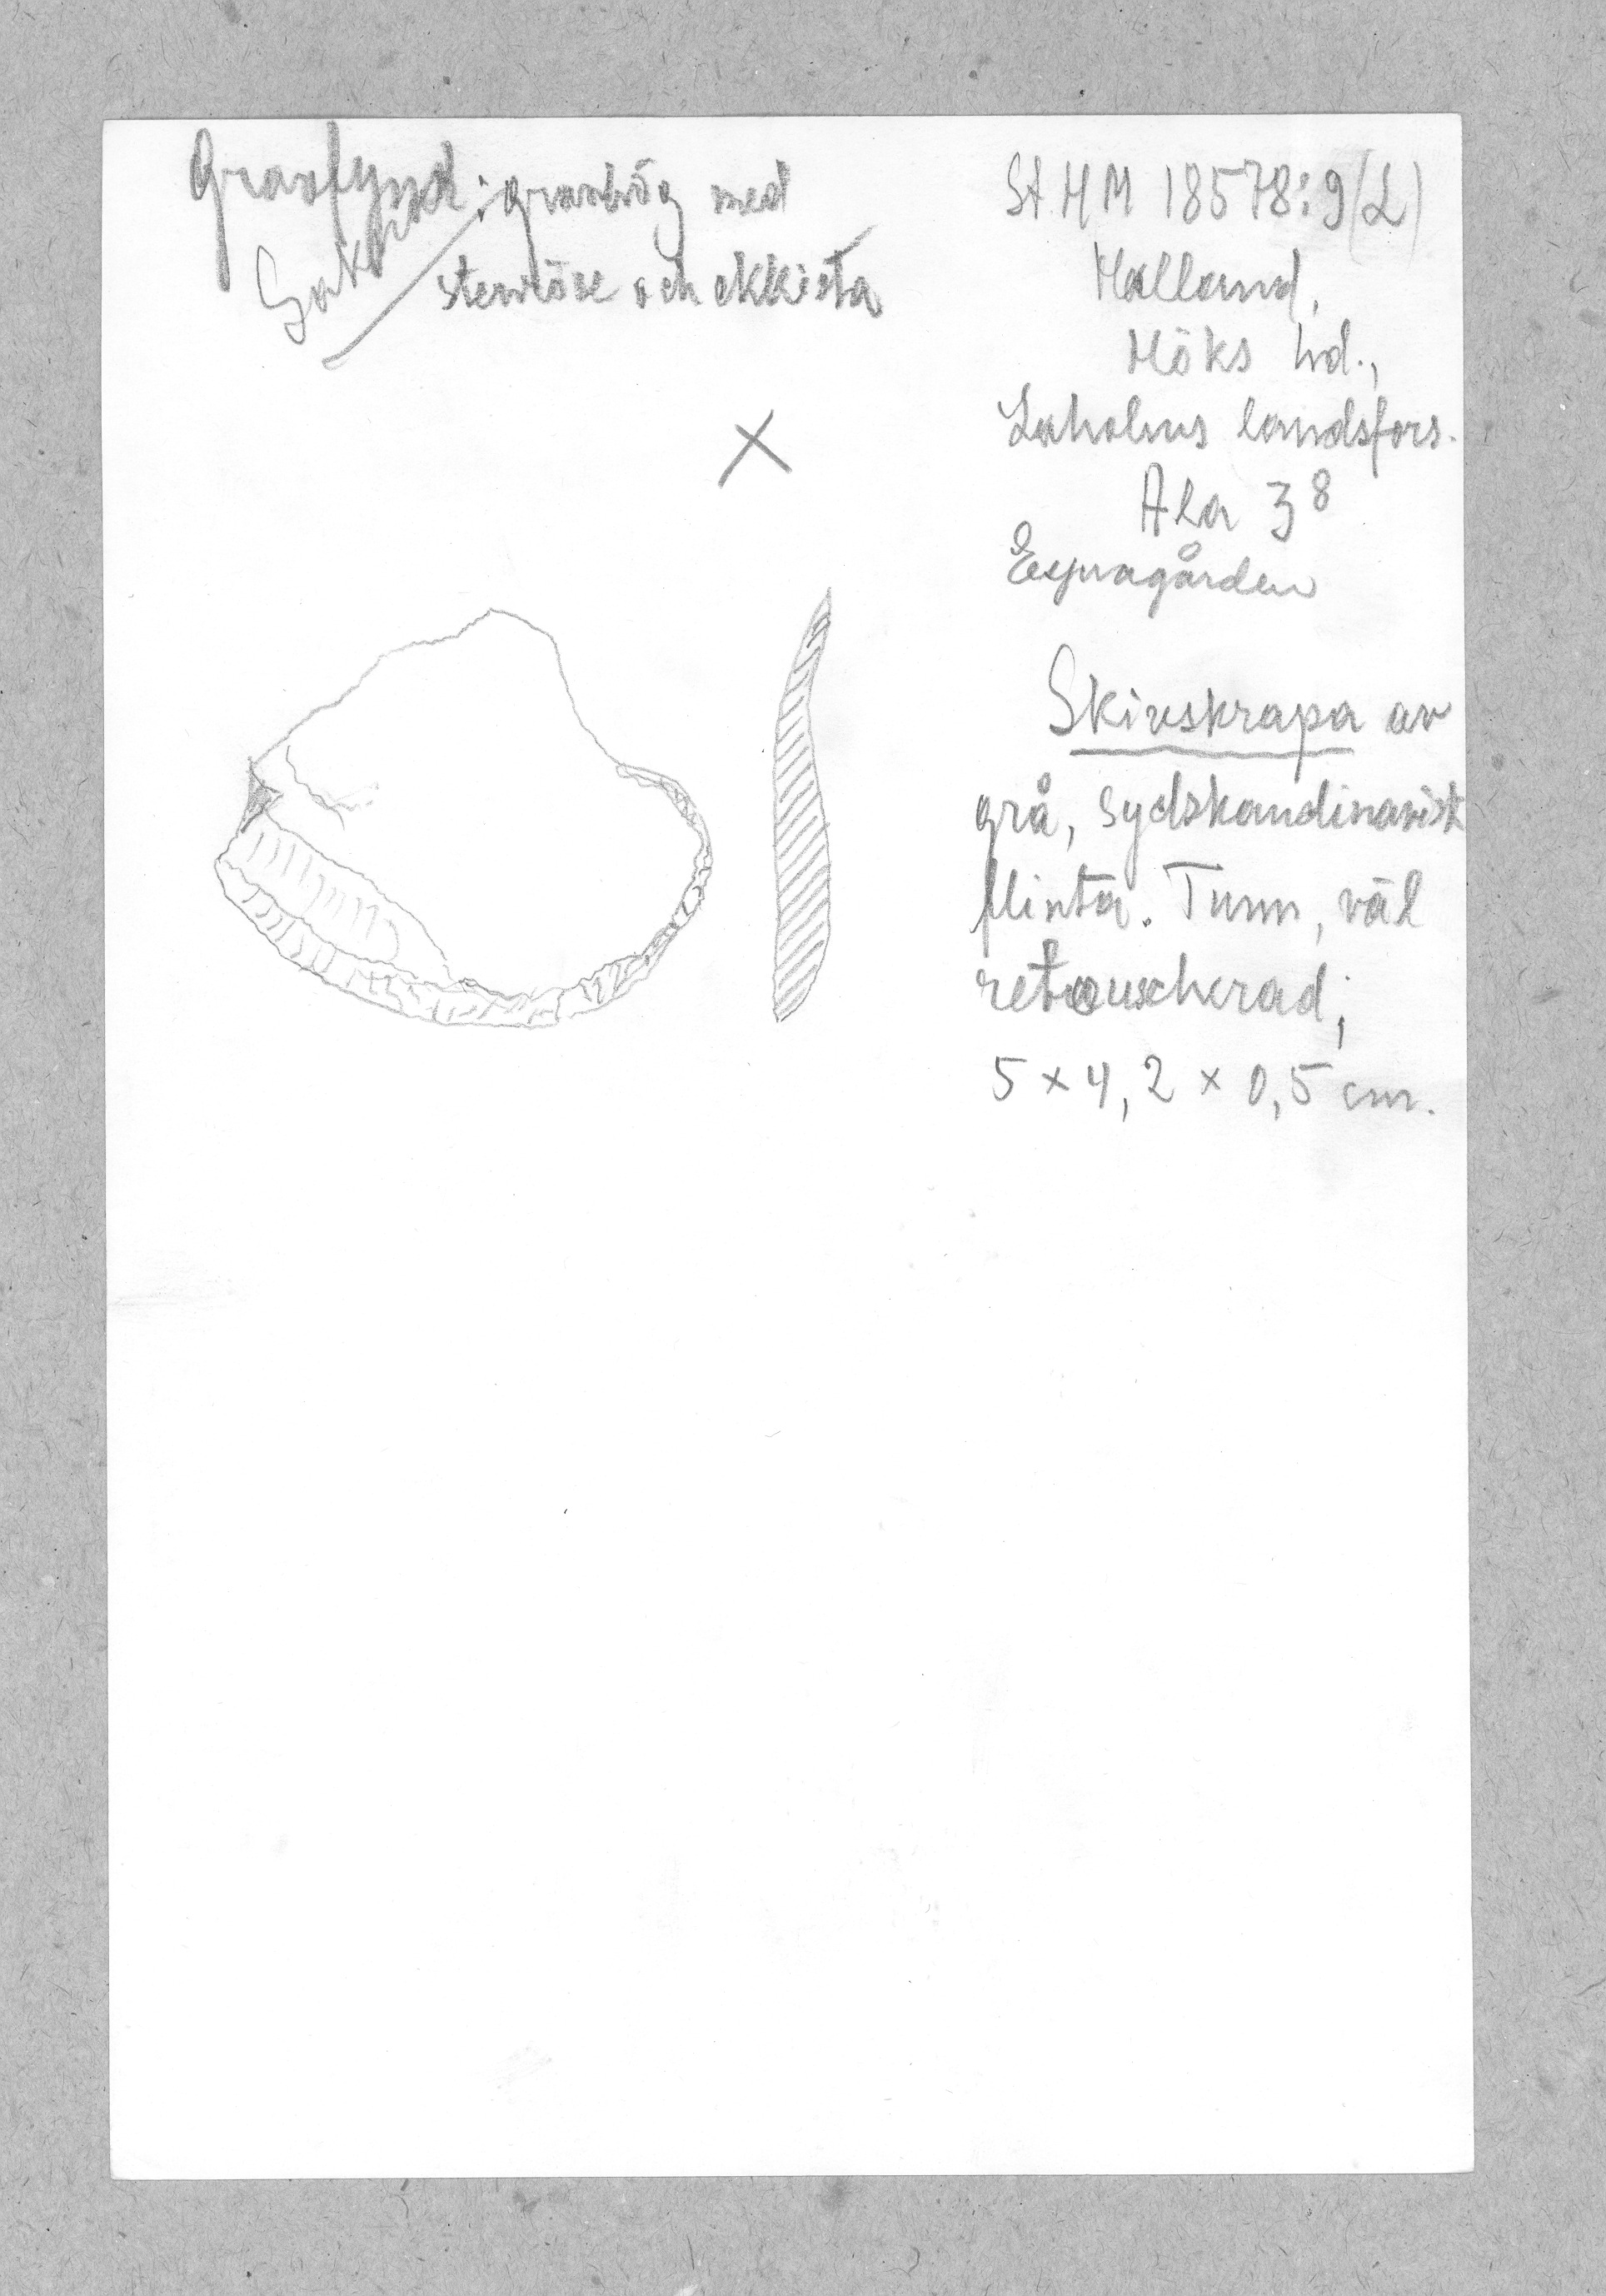 Gravfynd: gravhög med
stenröse och ekkista
X
St. H M 18578:9(L)
Halland,
Höks hd.,
Laholms landsförs.
Ala 3 8
Skivskrapa av
grå, sydskandinavisk
flinta. Tunn, väl
retouscherad;
5 x 4,2 x 0,5 cm.